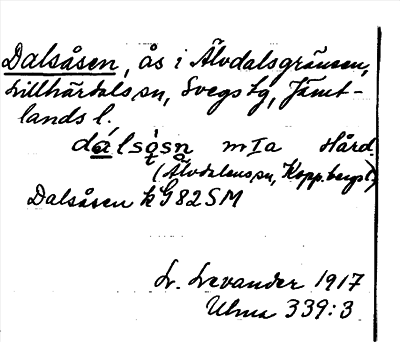 Dalsåsen, ås i Älvdalsgränsen,
Lillhärdals sn, Svegs tg, Jämt-
lands l.
dálsǫsn mIa Hård.
(Älvdalens sn, Kopp.bergs l.)
Dalsåsen k G82SM
L. Levander 1917
Ulma 339:3